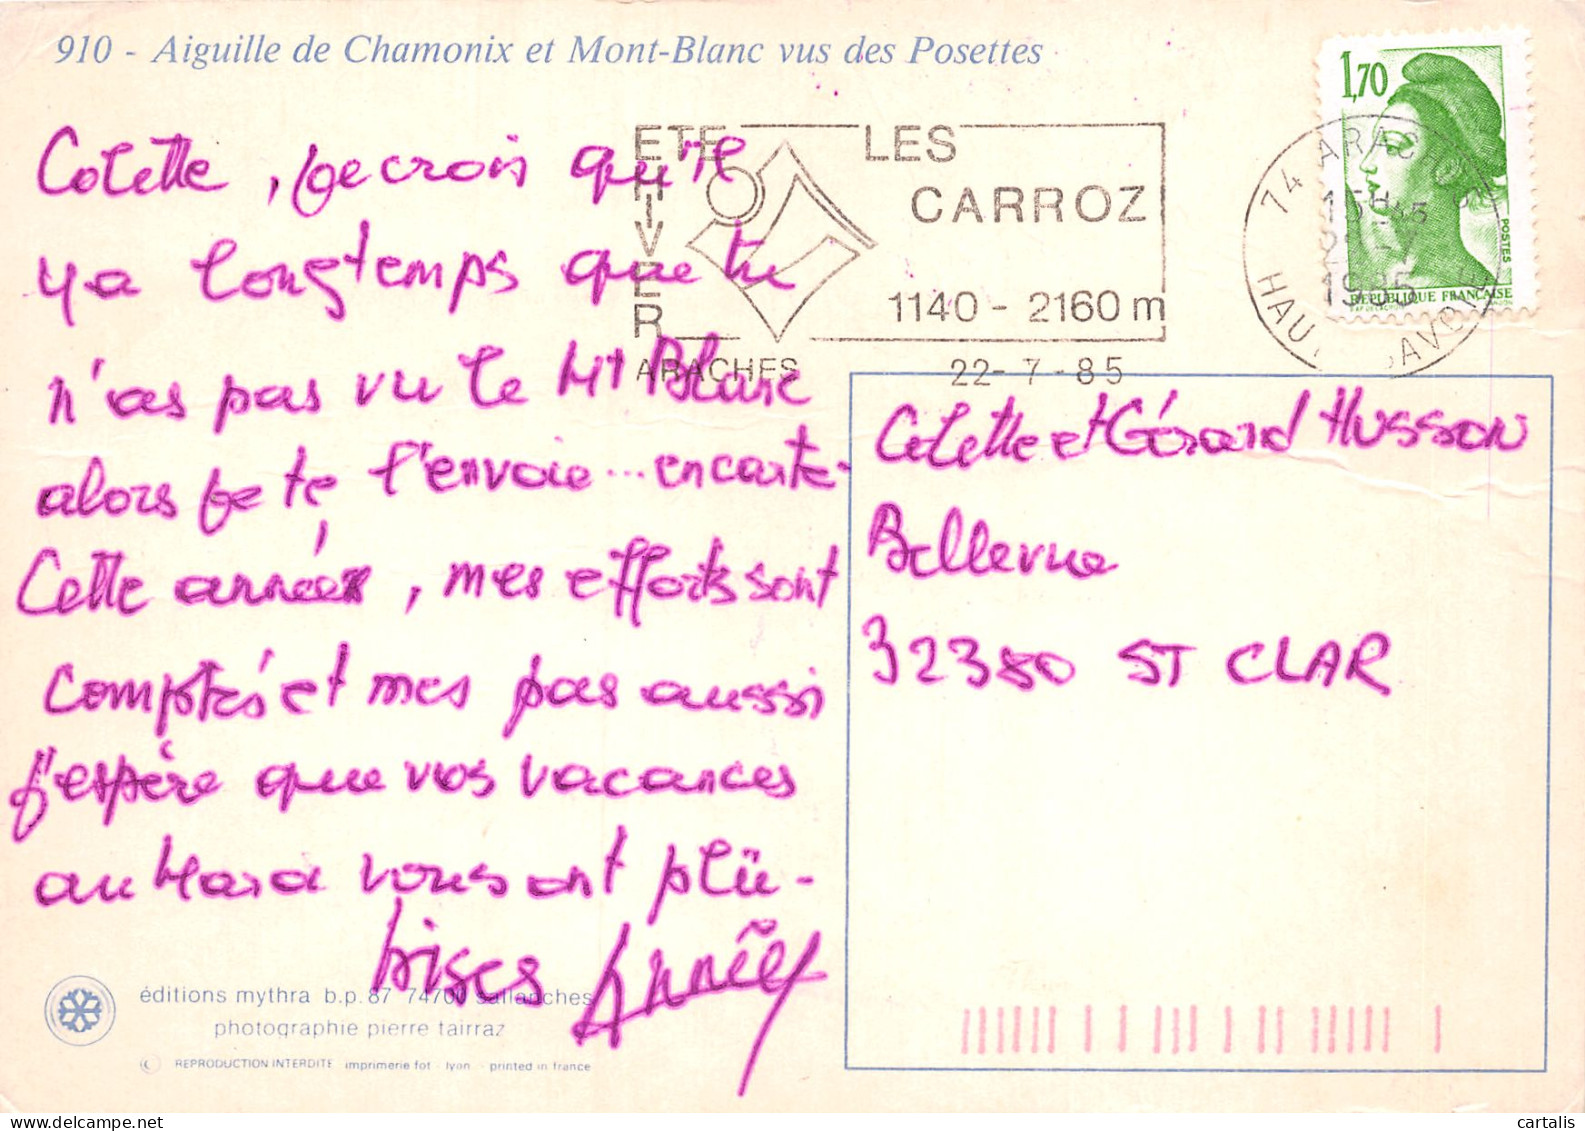 910 - Aiguille de Chamonix et Mont-Blanc vus des Posettes
1,70
POSTES
REPUBLIQUE FRANÇAISE
74 ARACHES
15H45
1985
HAUTE SAVOIE
ETE
HIVER
LES
CARROZ
1140 - 2160 m
ARACHES
22-7-85
Colette, je crois qu'il
y a longtemps que tu
n'as pas vu le Mt Blanc
alors je te l'envoie... en carte.
Cette année, mes efforts sont
comptés et mes pas aussi
J'espère que vos vacances
au vous ont plû -
bises
Colette et Gérard Husson
Bellevue
32380 ST CLAR
éditions mythra b.p. 87 74700 sallanches
photographie pierre tairraz
REPRODUCTION INTERDITE imprimerie fot - lyon - printed in france
cartalis